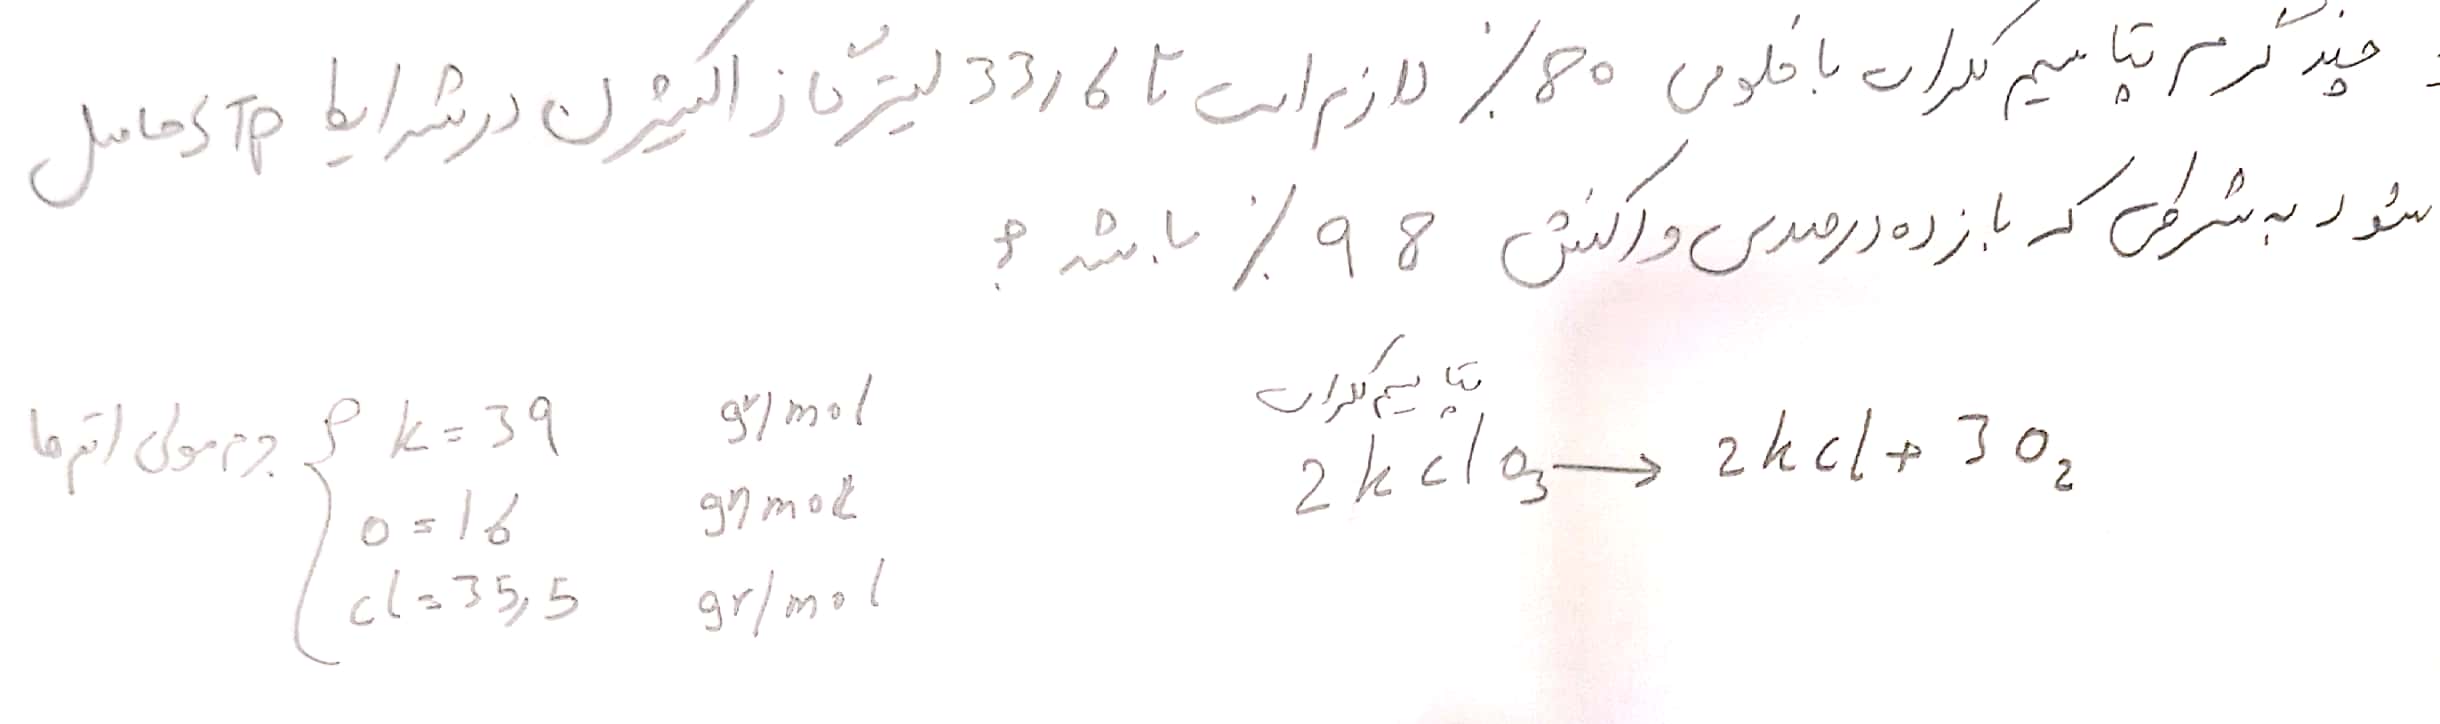 چند گرم پتاسیم کلرات با خلوص 80٪ لازم است تا 33,6 لیتر گاز اکسیژن در شرایط STP حاصل
شود به شرطی که بازده درصدی واکنش 98٪ باشد؟
پتاسیم کلرات
2kclO3 → 2kcl + 3O2
جرم مولی اتم ها { k = 39 gr/mol
O = 16 gr/mol
cl = 35,5 gr/mol